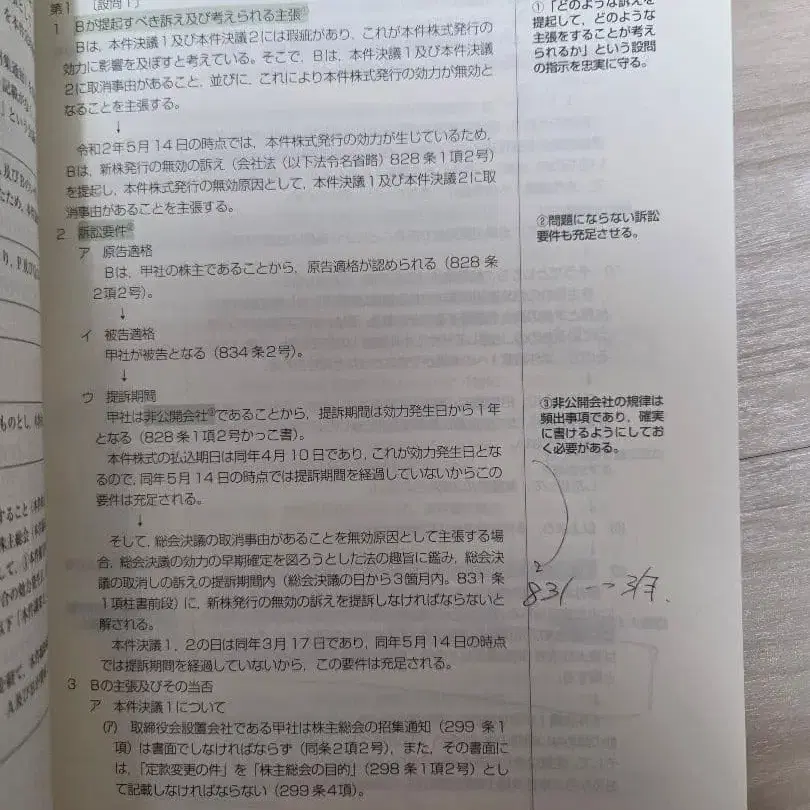 第1 〔設問1〕
1 Bが提起すべき訴え及び考えられる主張①
Bは、本件決議1及び本件決議2には瑕疵があり、これが本件株式発行の
効力に影響を及ぼすと考えている。そこで、Bは、本件決議1及び本件決議
2に取消事由があること、並びに、これにより本件株式発行の効力が無効と
なることを主張する。
↓
令和2年5月14日の時点では、本件株式発行の効力が生じているため、
Bは、新株発行の無効の訴え（会社法（以下法令名省略）828条1項2号）
を提起し、本件株式発行の無効原因として、本件決議1及び本件決議2に取
消事由があることを主張する。
2 訴訟要件②
ア 原告適格
Bは、甲社の株主であることから、原告適格が認められる（828条
2項2号）。
↓
イ 被告適格
甲社が被告となる（834条2号）。
↓
ウ 提訴期間
甲社は非公開会社③であることから、提訴期間は効力発生日から1年
となる（828条1項2号かっこ書）。
本件株式の払込期日は同年4月10日であり、これが効力発生日とな
るので、同年5月14日の時点では提訴期間を経過していないからこの
要件は充足される。
↓
そして、総会決議の取消事由があることを無効原因として主張する場
合、総会決議の効力の早期確定を図ろうとした法の趣旨に鑑み、総会決
議の取消しの訴えの提訴期間内（総会決議の日から3箇月内。831条
1項柱書前段）に、新株発行の無効の訴えを提訴しなければならないと
解される。
本件決議1、2の日は同年3月17日であり、同年5月14日の時点
では提訴期間を経過していないから、この要件は充足される。
3 Bの主張及びその当否
ア 本件決議1について
(ｱ) 取締役会設置会社である甲社は株主総会の招集通知（299条1
項）は書面でしなければならず（同条2項2号）、また、その書面に
は、「定款変更の件」を「株主総会の目的」（298条1項2号）とし
て記載しなければならない（299条4項）。
①「どのような訴えを
提起して、どのような
主張をすることが考え
られるか」という設問
の指示を忠実に守る。
②問題にならない訴訟
要件も充足させる。
③非公開会社の規律は
頻出事項であり、確実
に書けるようにしてお
く必要がある。
831